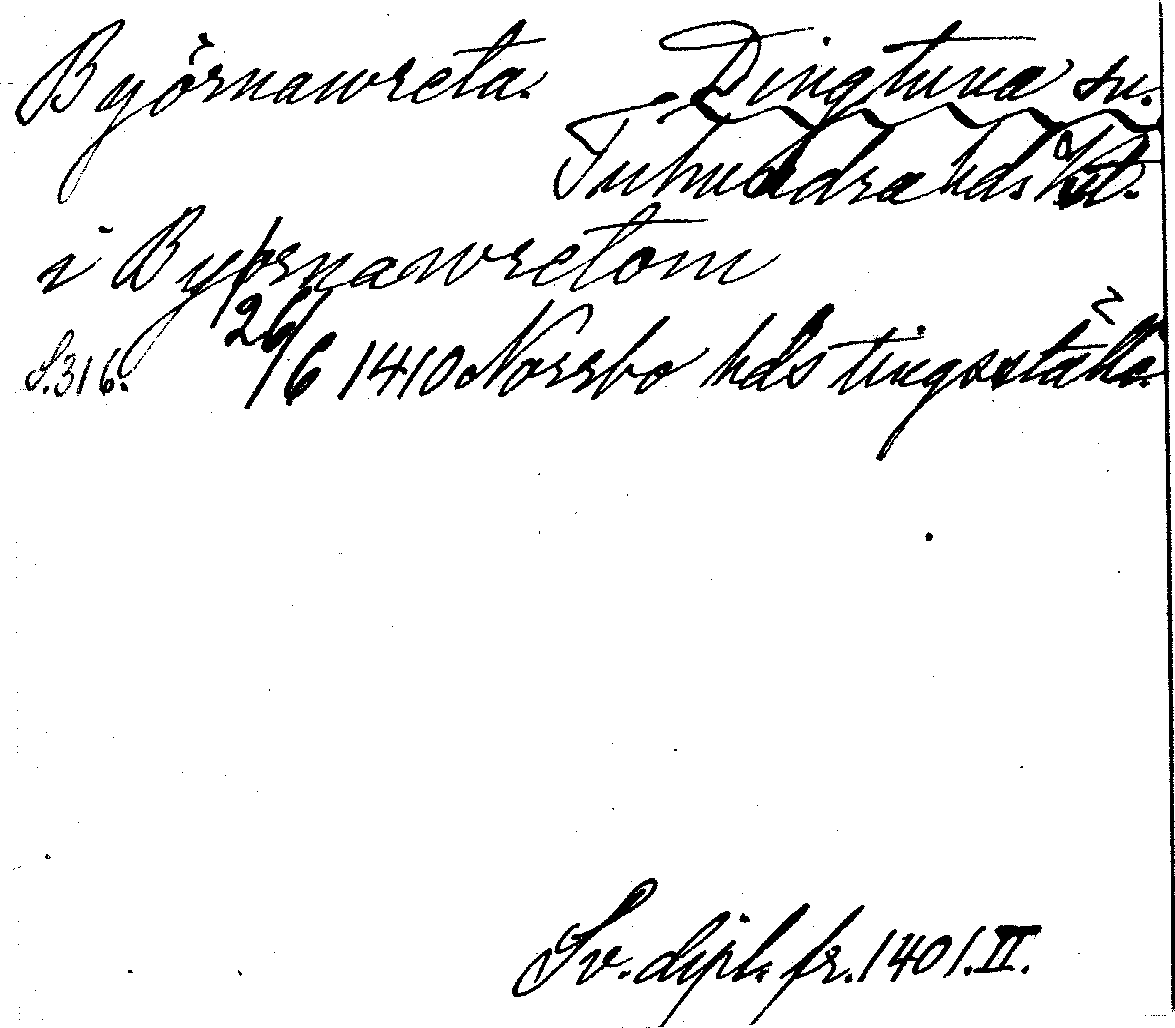 Byörnawreta. Dingtuna sn.
Tuhundra hd.
i Byørnawretom
S.316. 26/6 1410 Norrbo hds tingställe
Sv. dipl. fr. 1401. II.